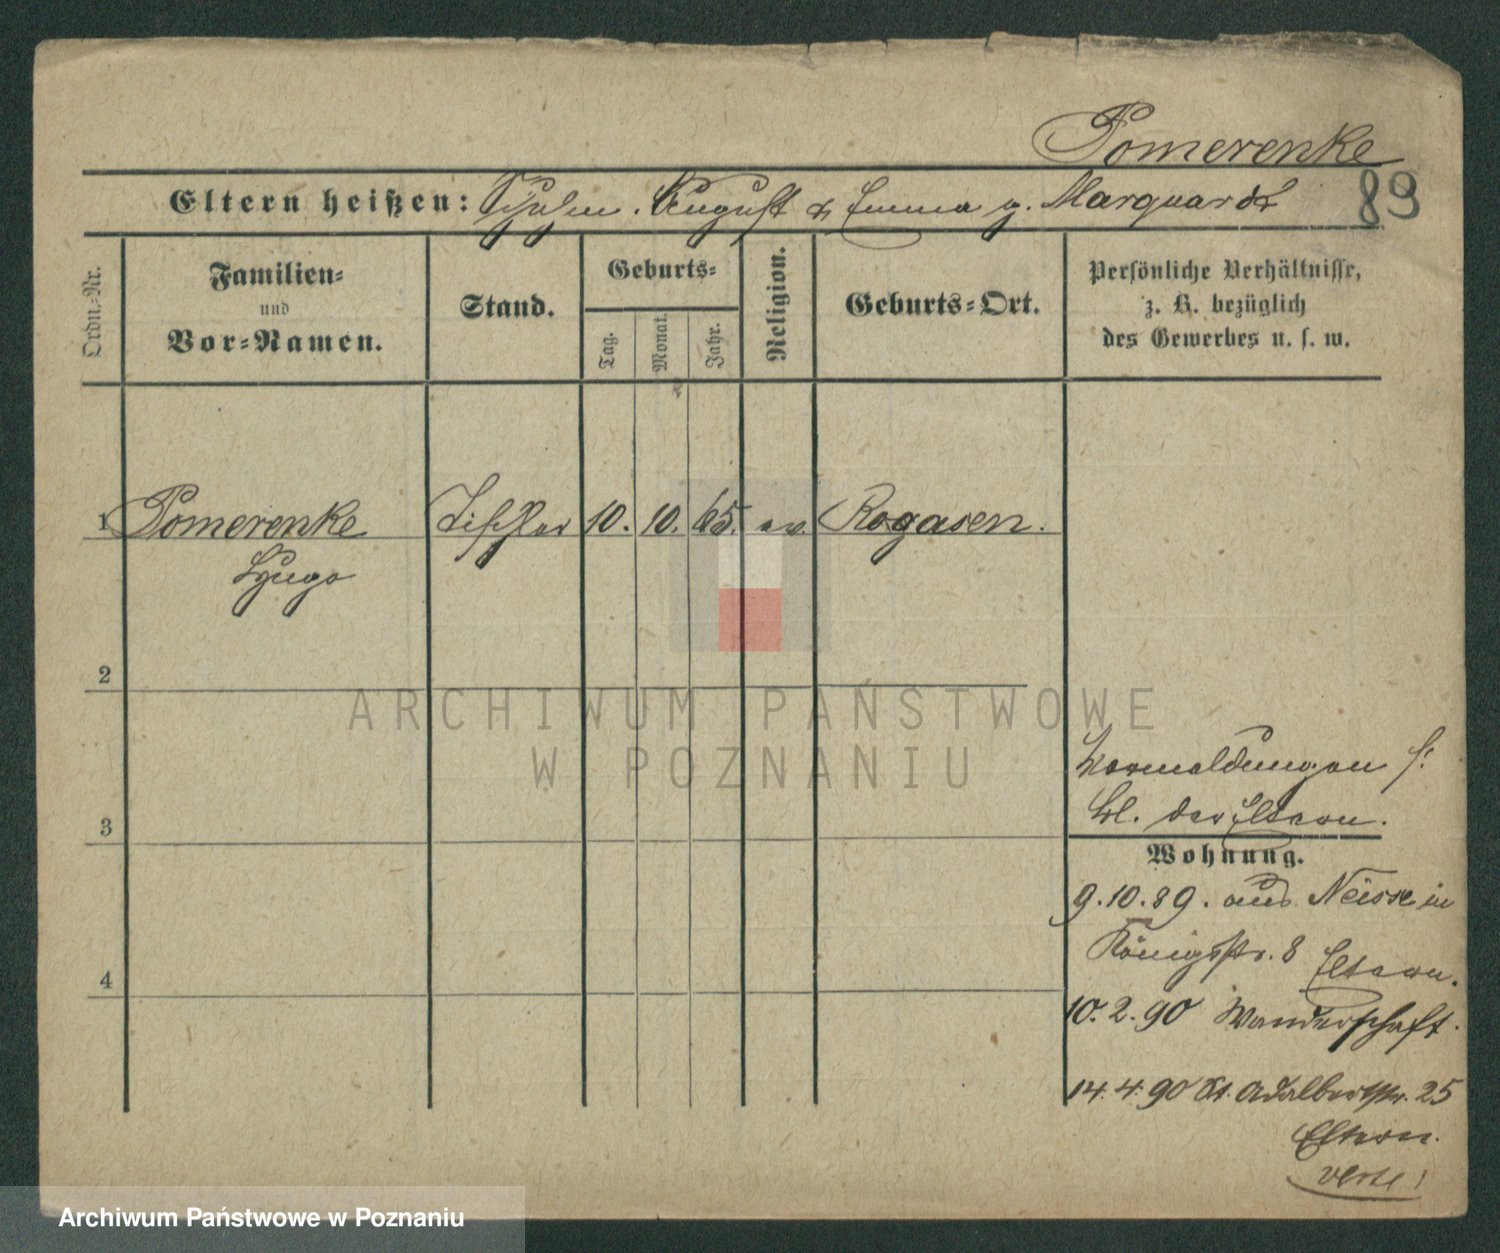 Pomerenke
Eltern heißen: August & Emma g. Marquardt
89
Ordn.-Nr.
Familien-
und
Vor-Namen.
Stand.
Geburts-
Tag.
Monat.
Jahr.
Religion.
Geburts-Ort.
Persönliche Verhältnisse,
z. B. bezüglich
des Gewerbes u. s. w.
1 Pomerenke Tischler 10. 10. 65. ev. Rogasen.
Hugo
2
ARCHIWUM PAŃSTWOWE
W POZNANIU
Vormeldungen s.
Bl. der Eltern.
3
Wohnung.
9.10.89. aus Neisse in
Königsstr. 8 Eltern.
4
10.2.90 Wanderschaft.
14.4.90 St. Adalbertstr. 25
Eltern.
verte!
Archiwum Państwowe w Poznaniu